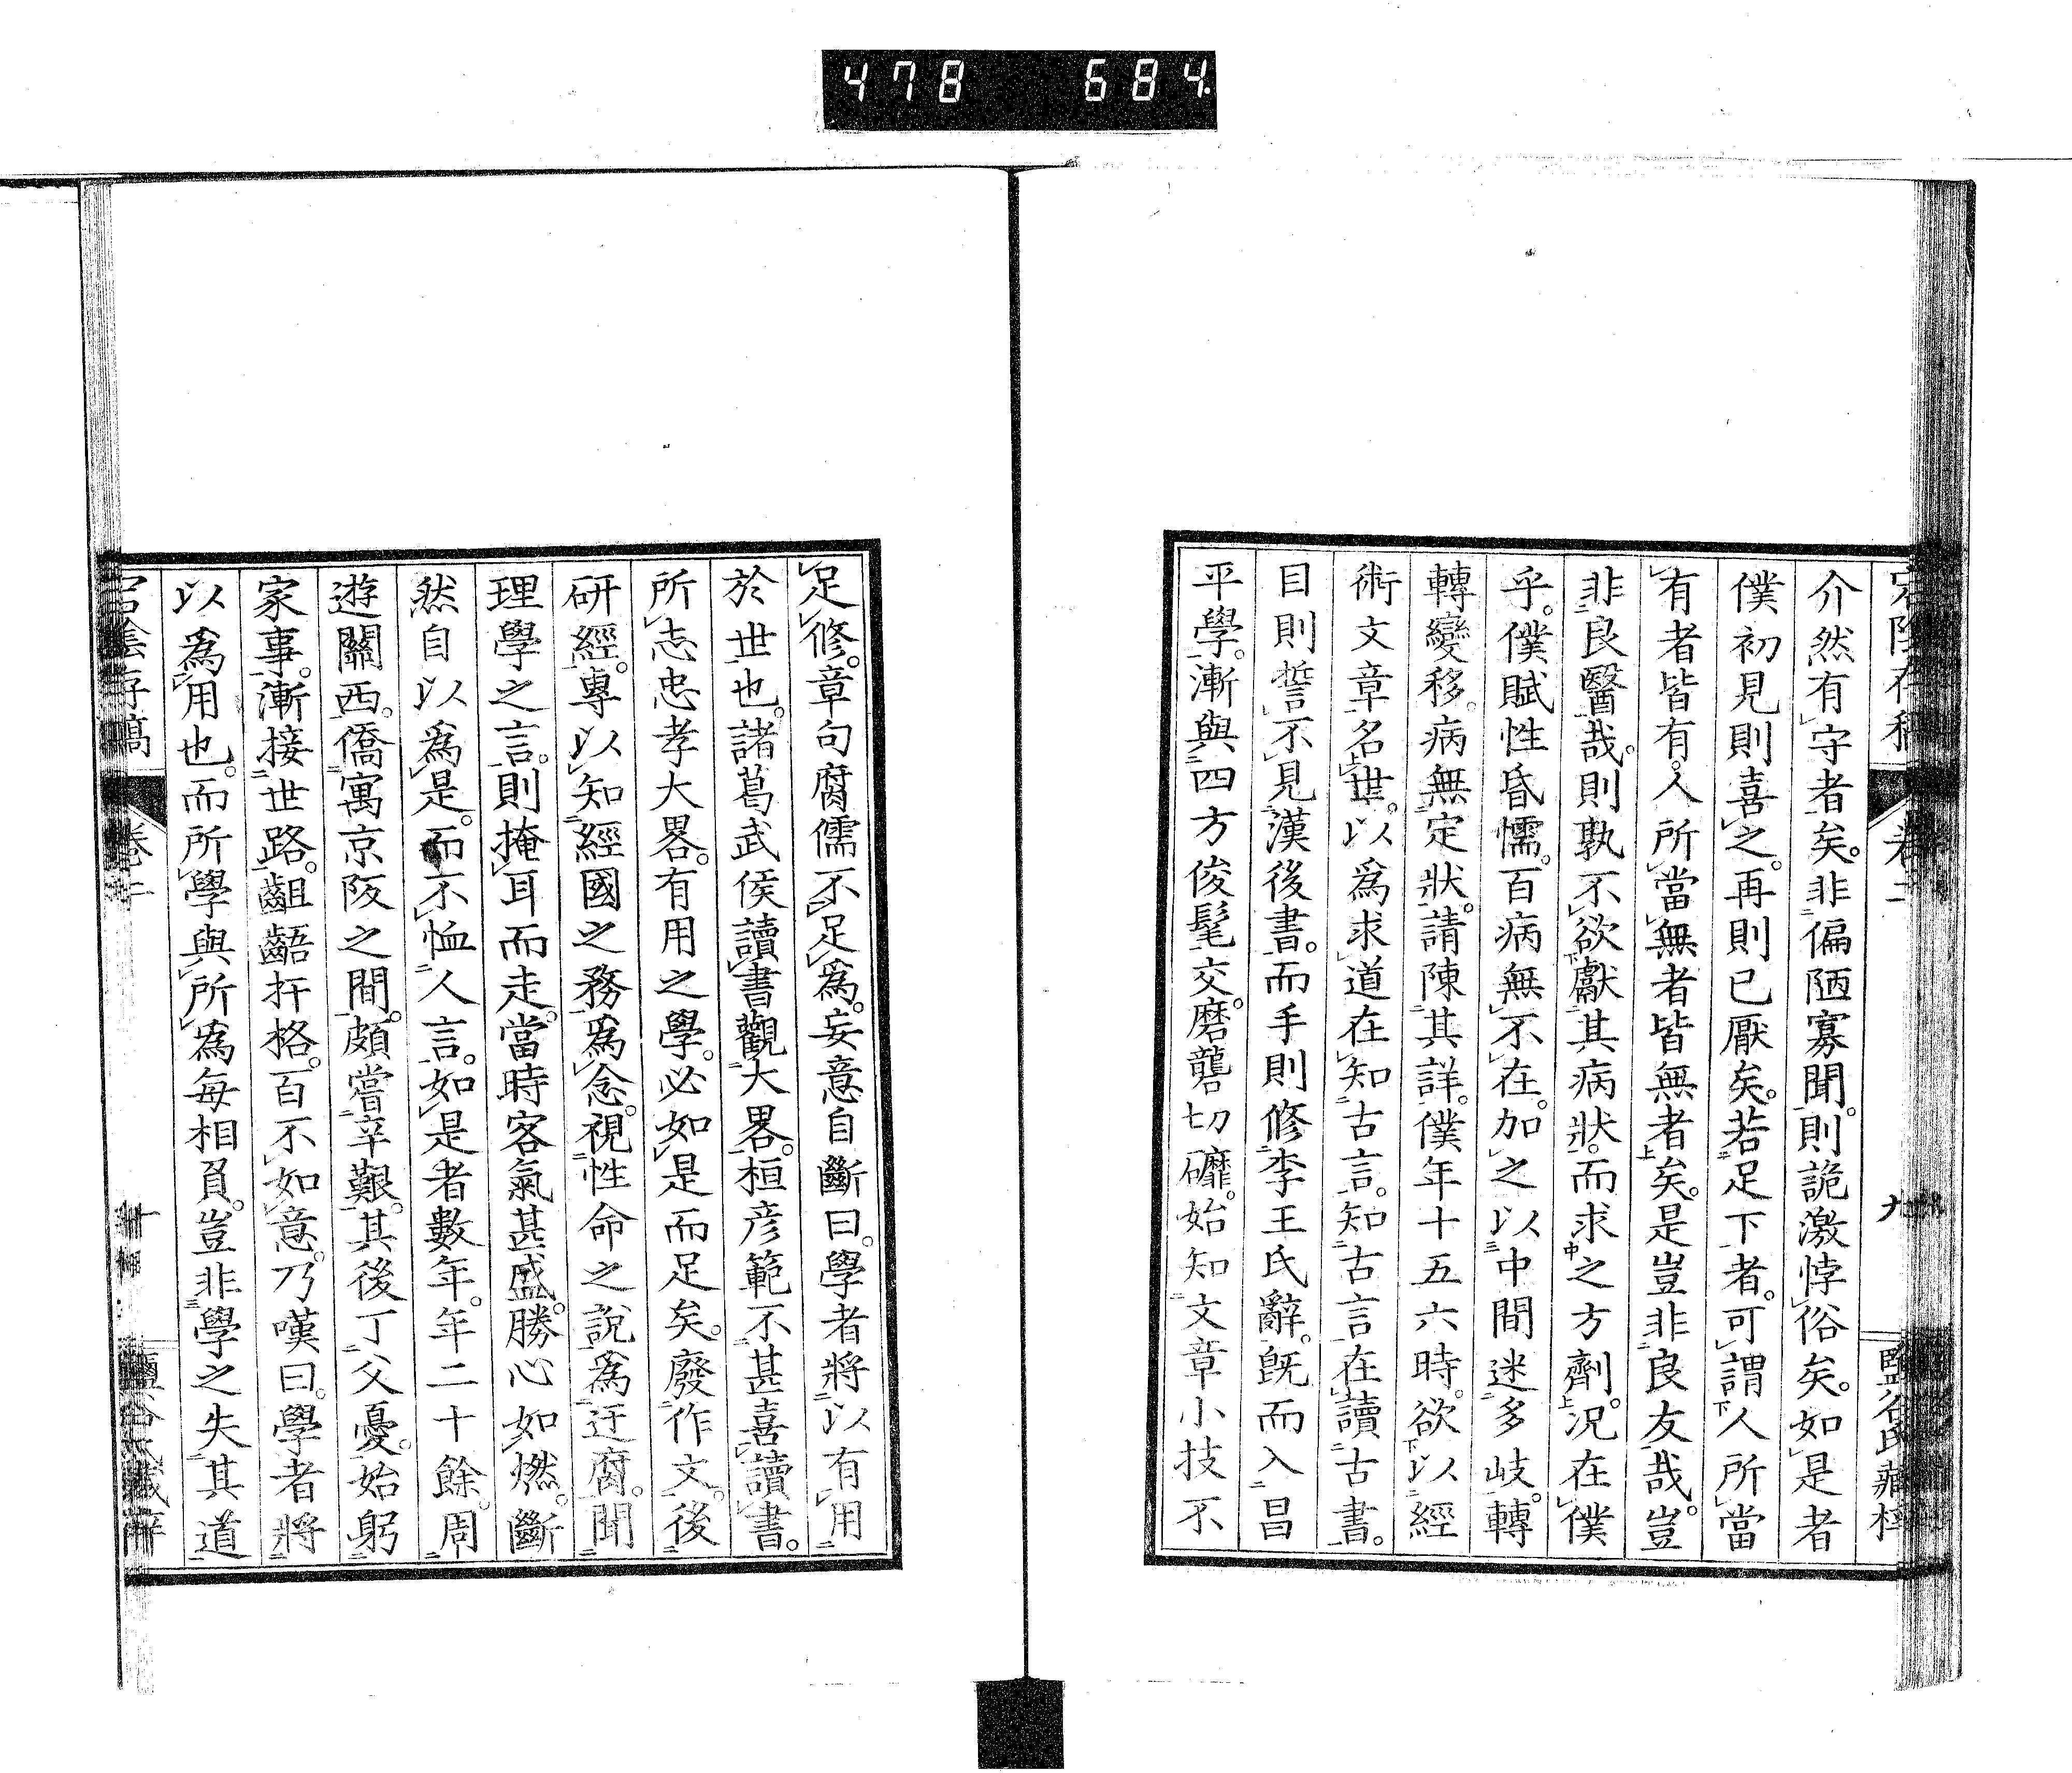 478 684.
宕陰存稿 卷二 九 鹽谷氏藏梓
介然有守者矣。非偏陋寡聞。則詭激悖俗矣。如是者
僕初見則喜之。再則已厭矣。若足下者。可謂人所當
有者皆有。人所當無者皆無者矣。是豈非良友哉。豈
非良醫哉。則孰不欲獻其病狀。而求之方劑。況在僕
乎。僕賦性昏懦。百病無不在。加之以中間迷多岐。轉
轉變移。病無定狀。請陳其詳。僕年十五六時。欲以經
術文章名世。以為求道在知古言。知古言在讀古書。
目則誓不見漢後書。而手則修李王氏辭。既而入昌
平學。漸與四方俊髦交。磨礱切礳。始知文章小技不
足修。章句腐儒不足為。妄意自斷曰。學者將以有用
於世也。諸葛武侯讀書觀大畧。桓彦範不甚喜讀書。
所志忠孝大畧。有用之學。必如是而足矣。廢作文。後
研經。專以知經國之務為念。視性命之說為迂腐。聞
理學之言。則掩耳而走。當時客氣甚盛。勝心如燃。斷
然自以為是。而不恤人言。如是者數年。年二十餘。周
遊關西。僑寓京阪之間。頗嘗辛艱。其後丁父憂。始躬
家事。漸接世路。齟齬扞格。百不如意。乃嘆曰。學者將
以為用也。而所學與所為每相負。豈非學之失其道
宕陰存稿 卷二 十 鹽谷氏藏梓